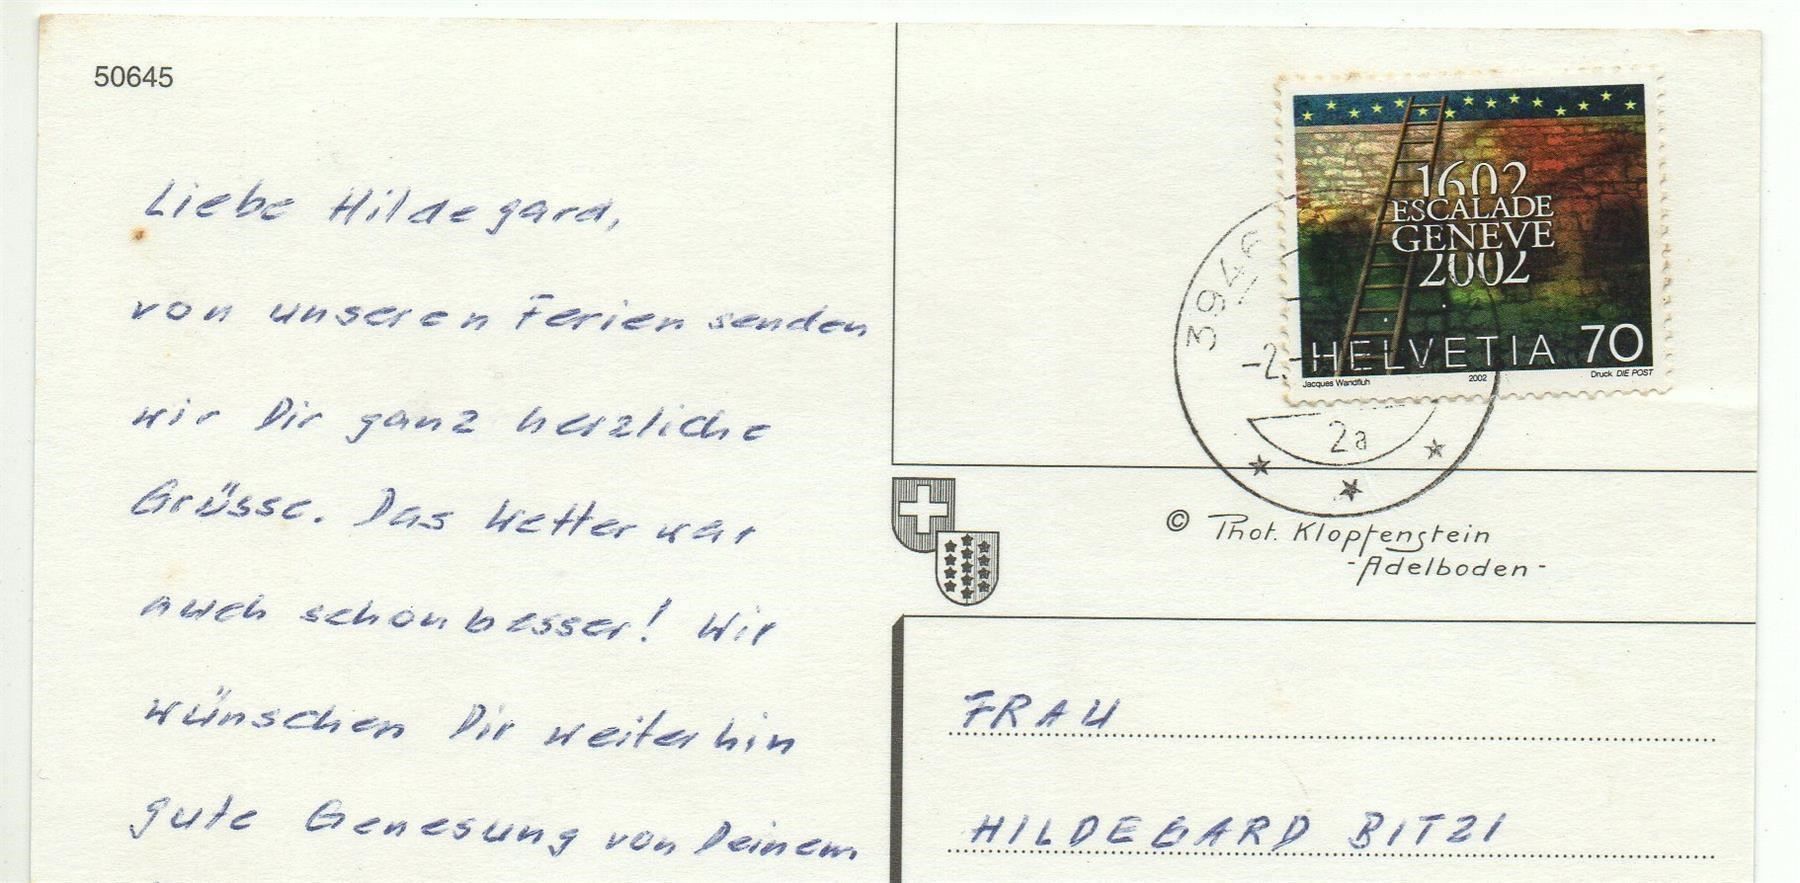 50645
Liebe Hildegard,
von unseren Ferien senden
wir Dir ganz herzliche
Grüsse. Das Wetter war
auch schon besser! Wir
wünschen Dir weiterhin
gute Genesung von Deinem
1602
ESCALADE
GENEVE
2002
HELVETIA 70
Jacques Wandfluh 2002 Druck DIE POST
3946
-2.-
2a
© Phot. Klopfenstein
-Adelboden-
FRAU
HILDEGARD BITZI